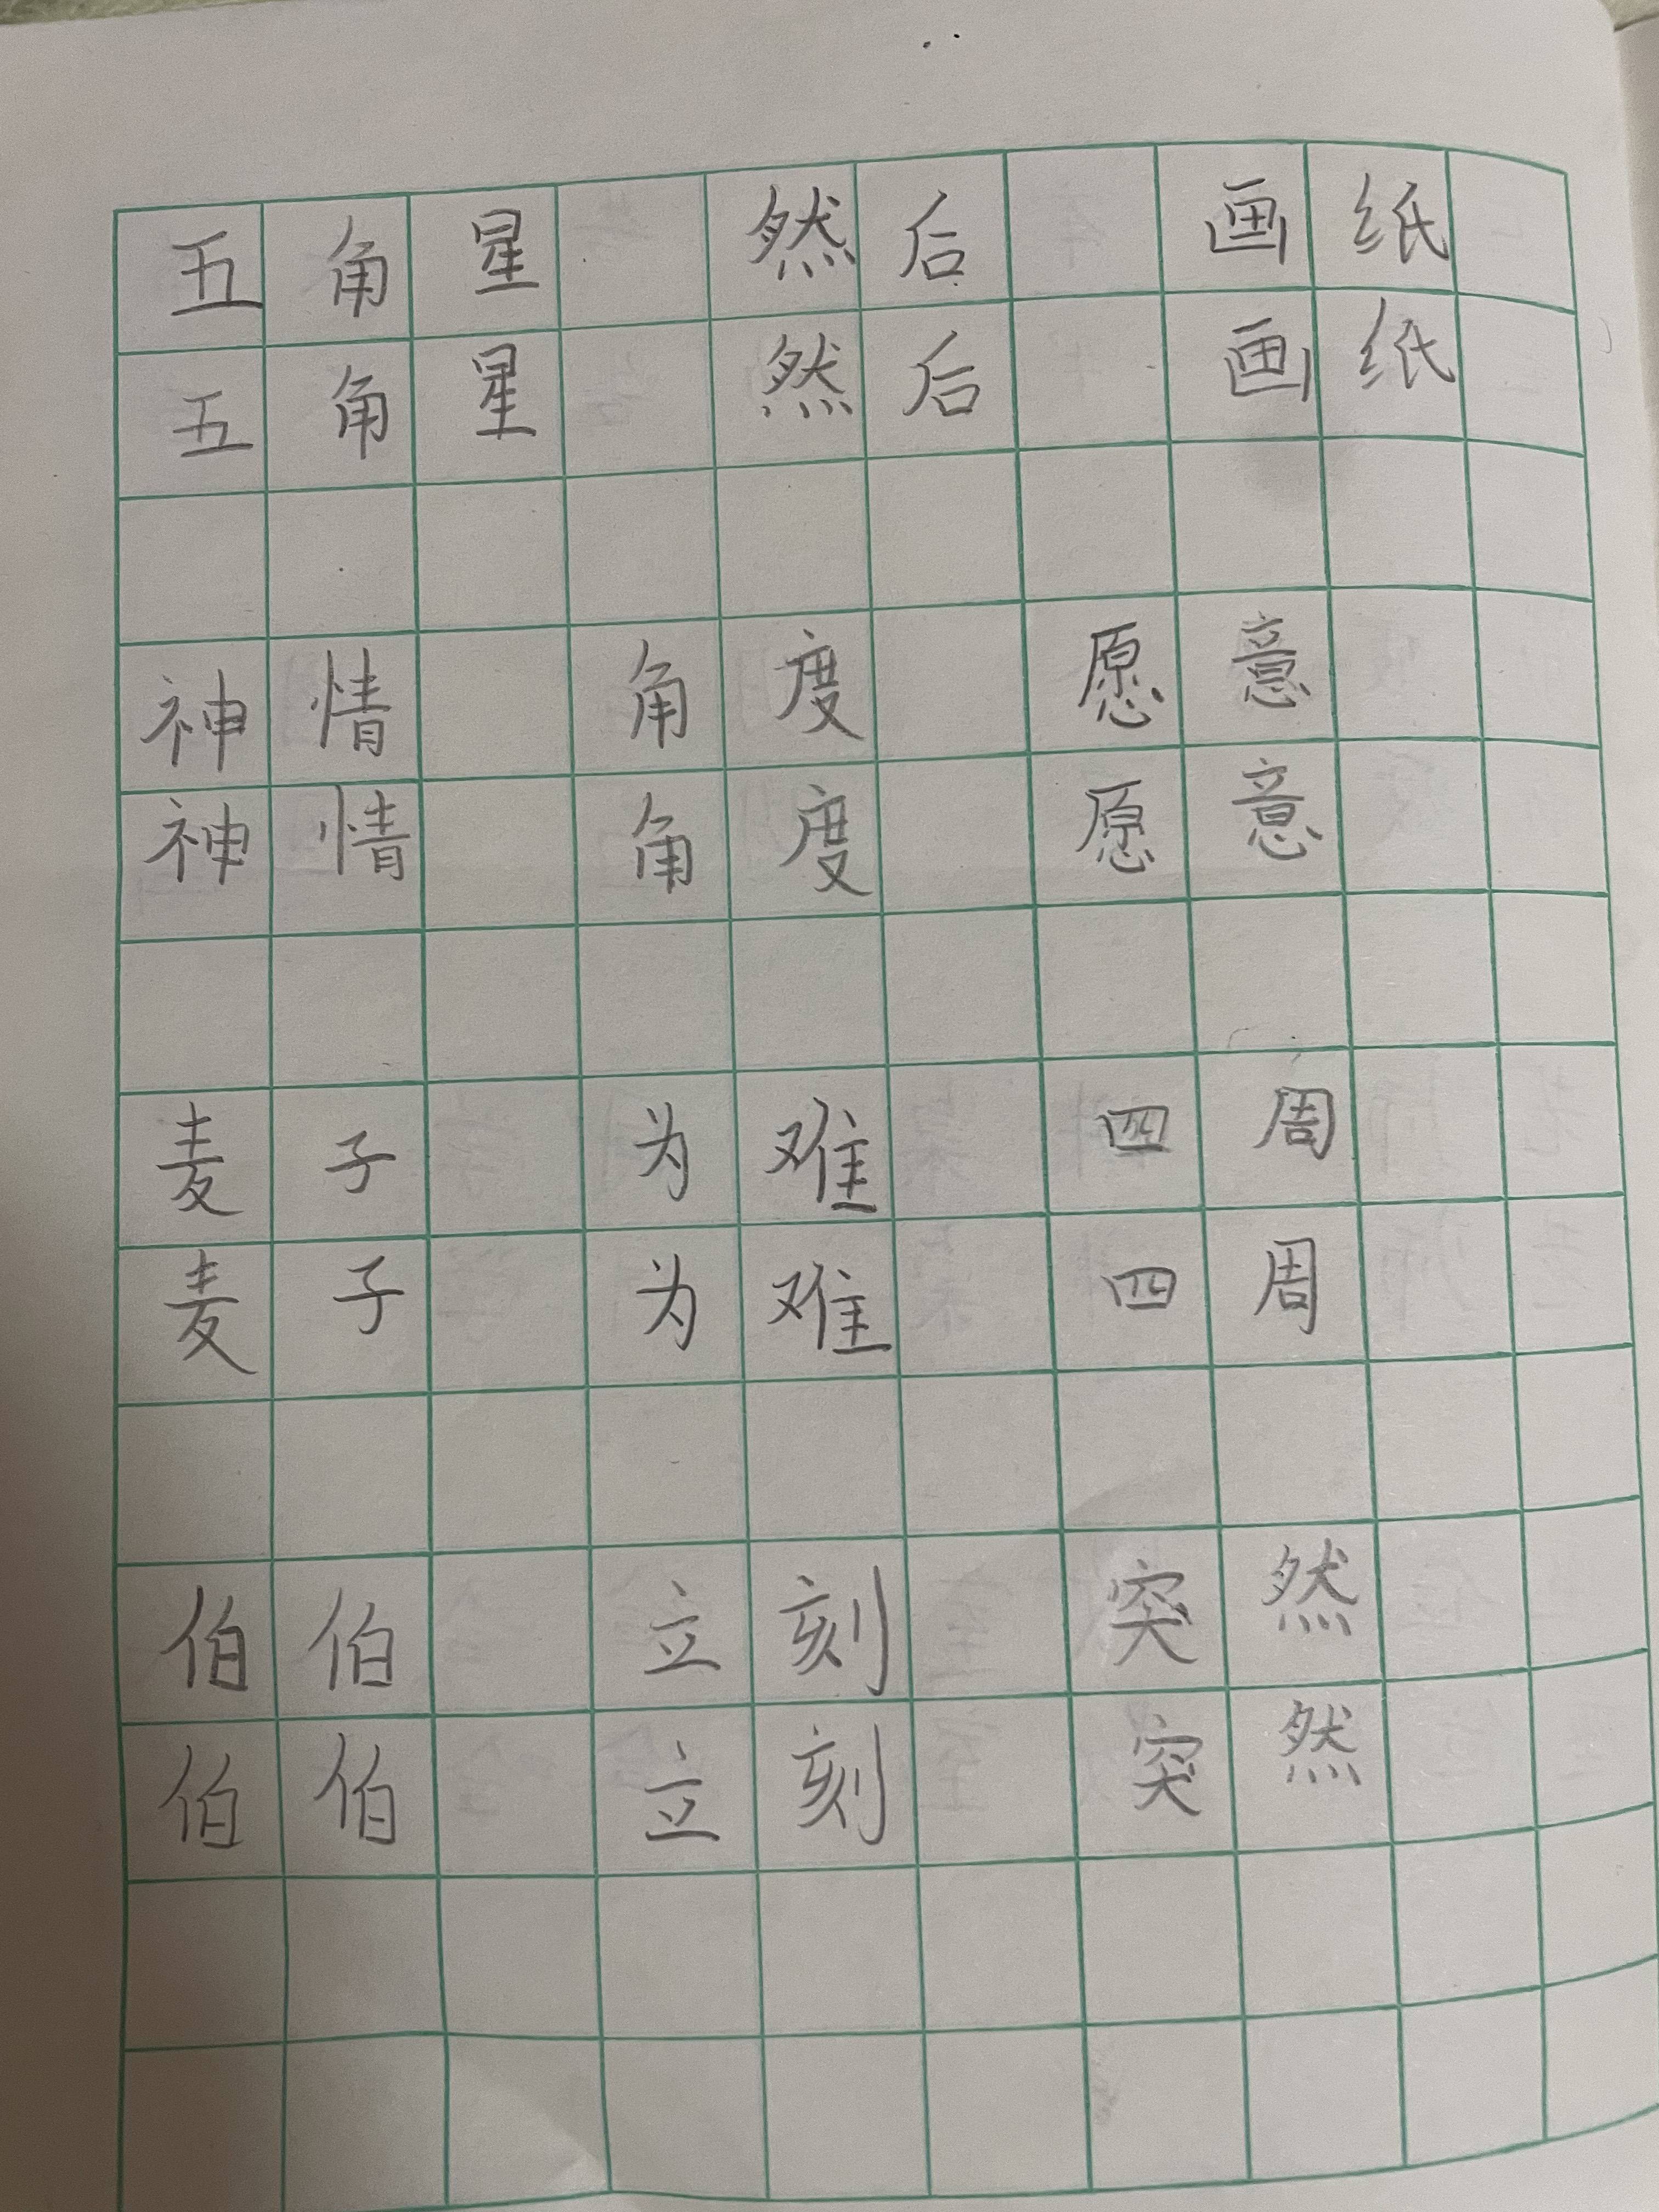 五角星 然后 画纸
五角星 然后 画纸
神情 角度 愿意
神情 角度 愿意
麦子 为难 四周
麦子 为难 四周
伯伯 立刻 突然
伯伯 立刻 突然